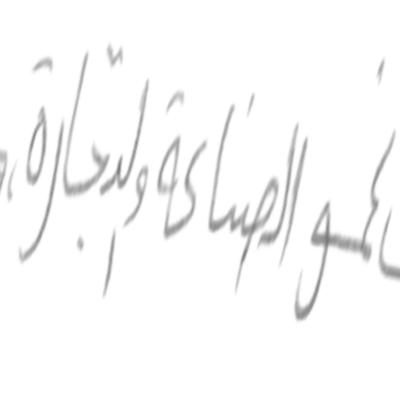 نمو الصناعة والتجارة